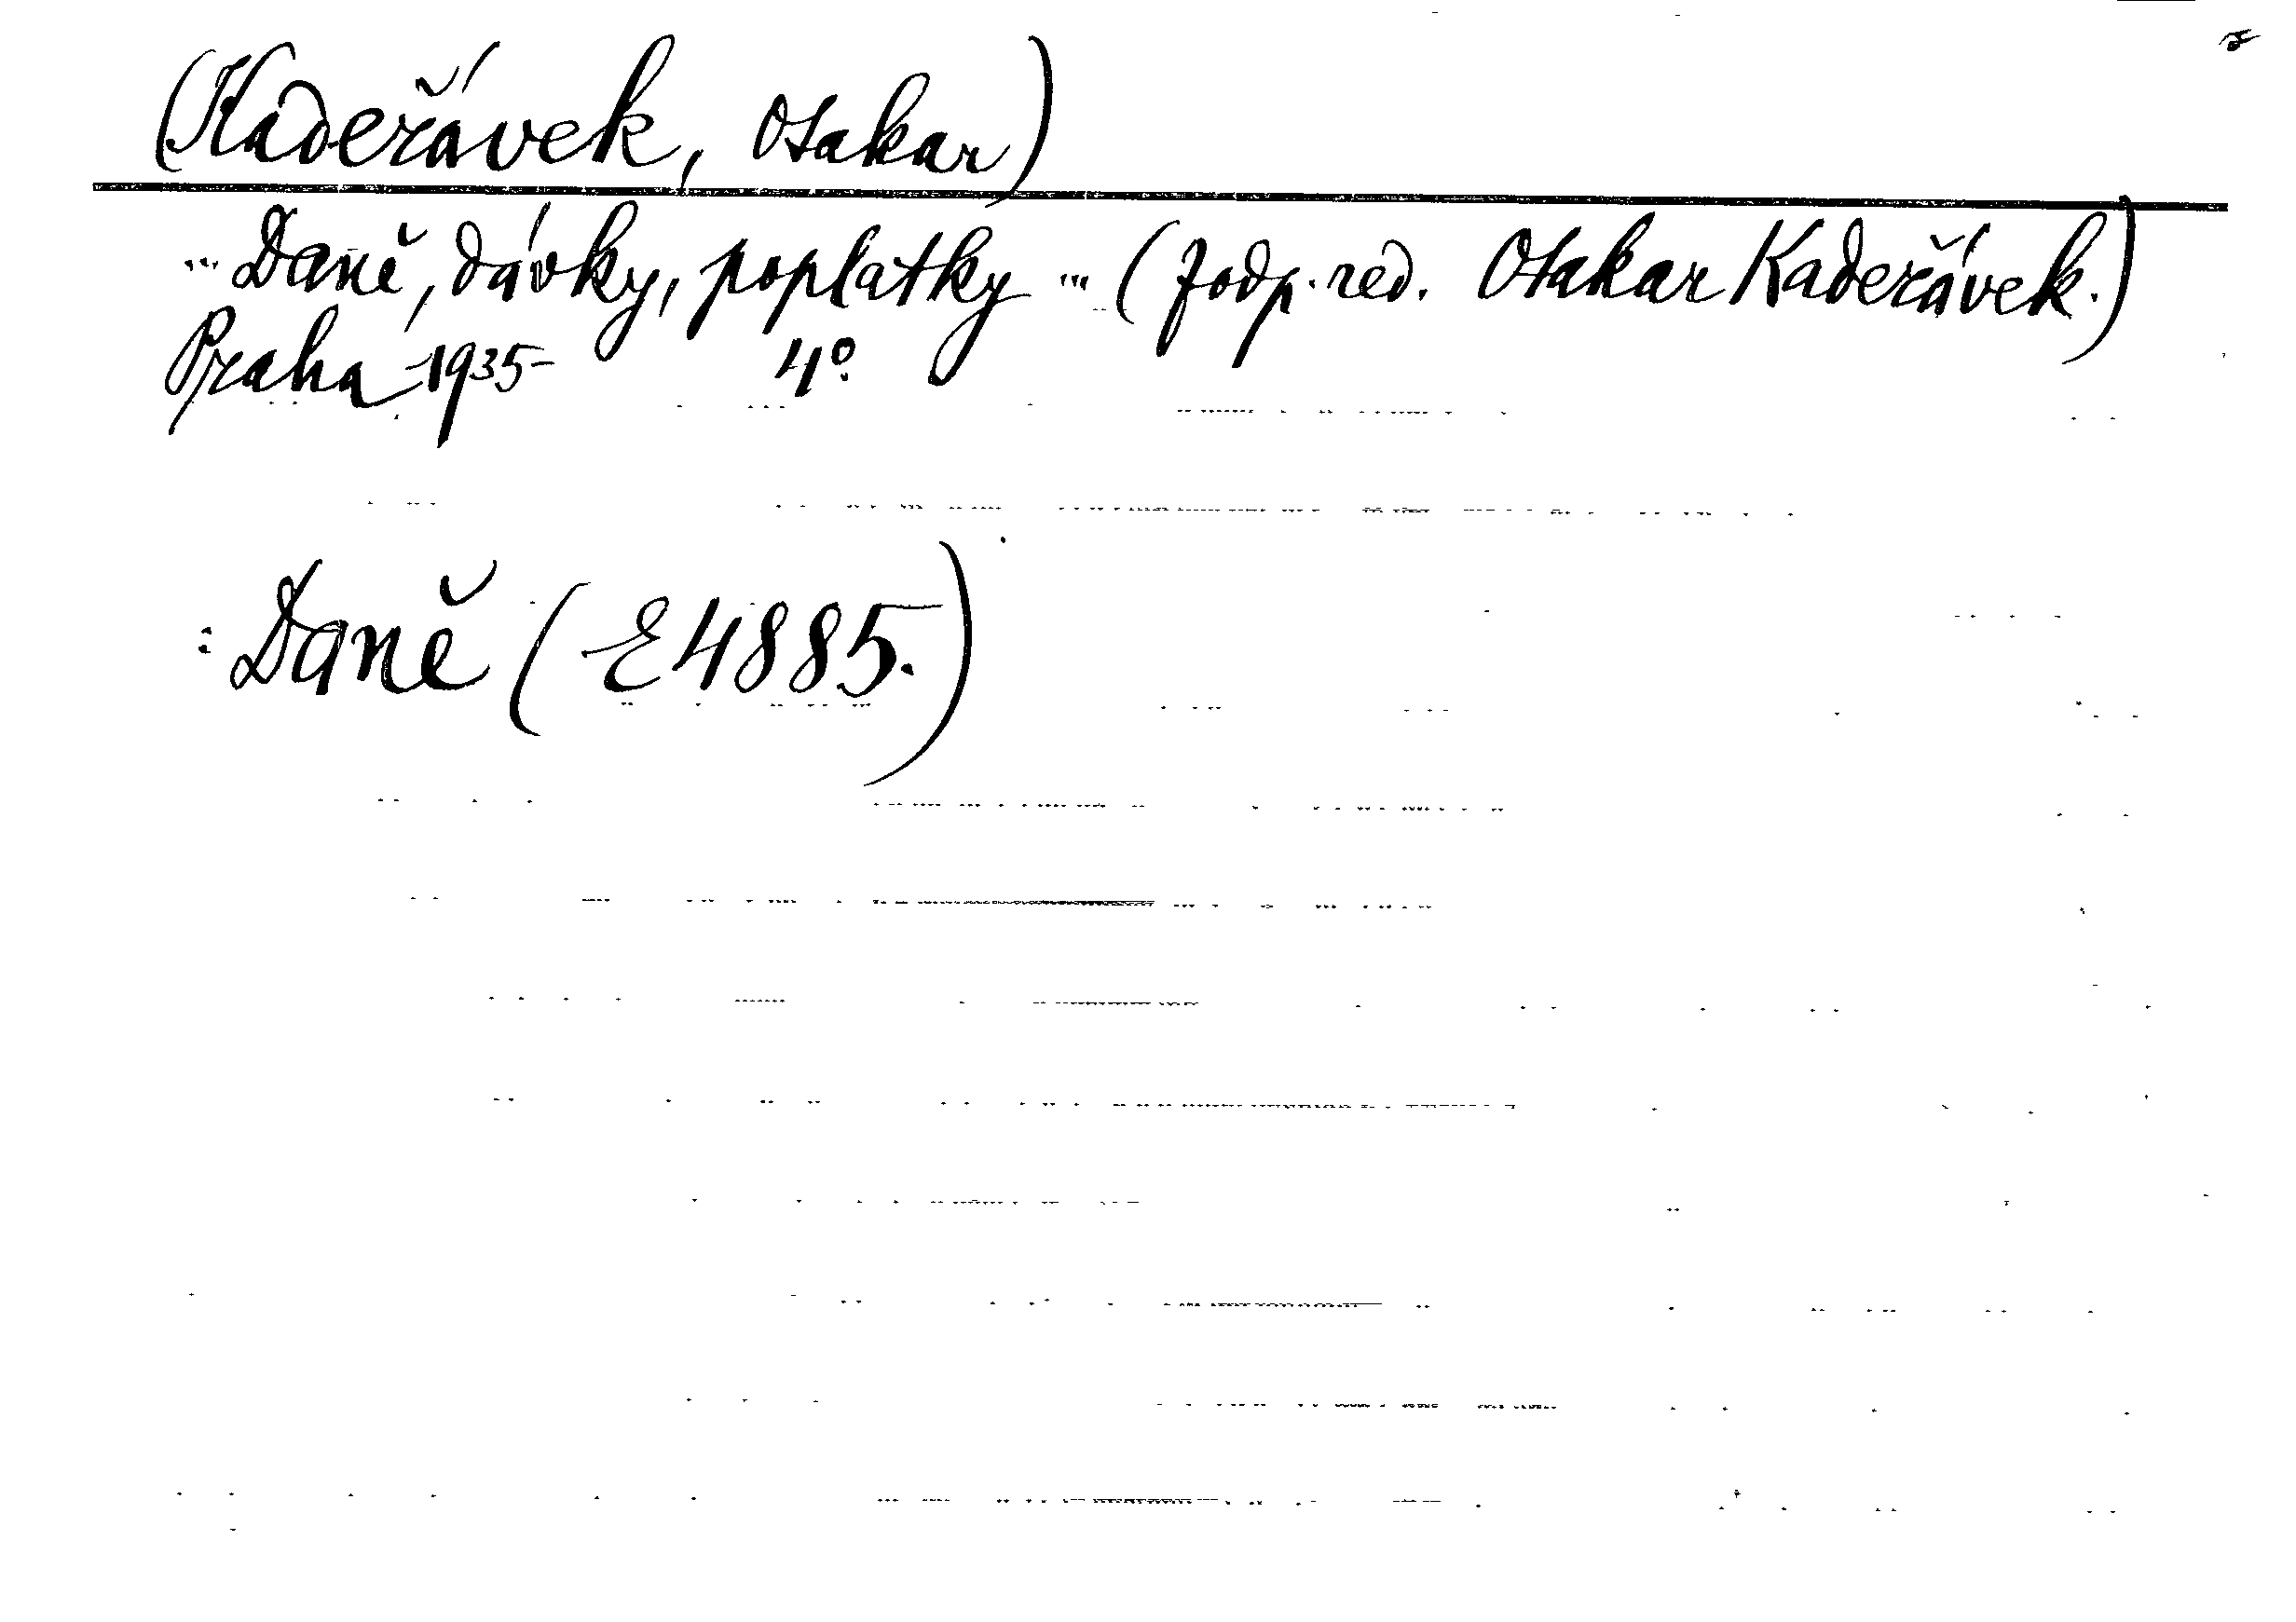 (Kadeřávek, Otakar)
... Daně, dávky, poplatky ... (Zodp. red. Otakar Kadeřávek.)
Praha 1935- 4°.
: Daně (E 4885.)